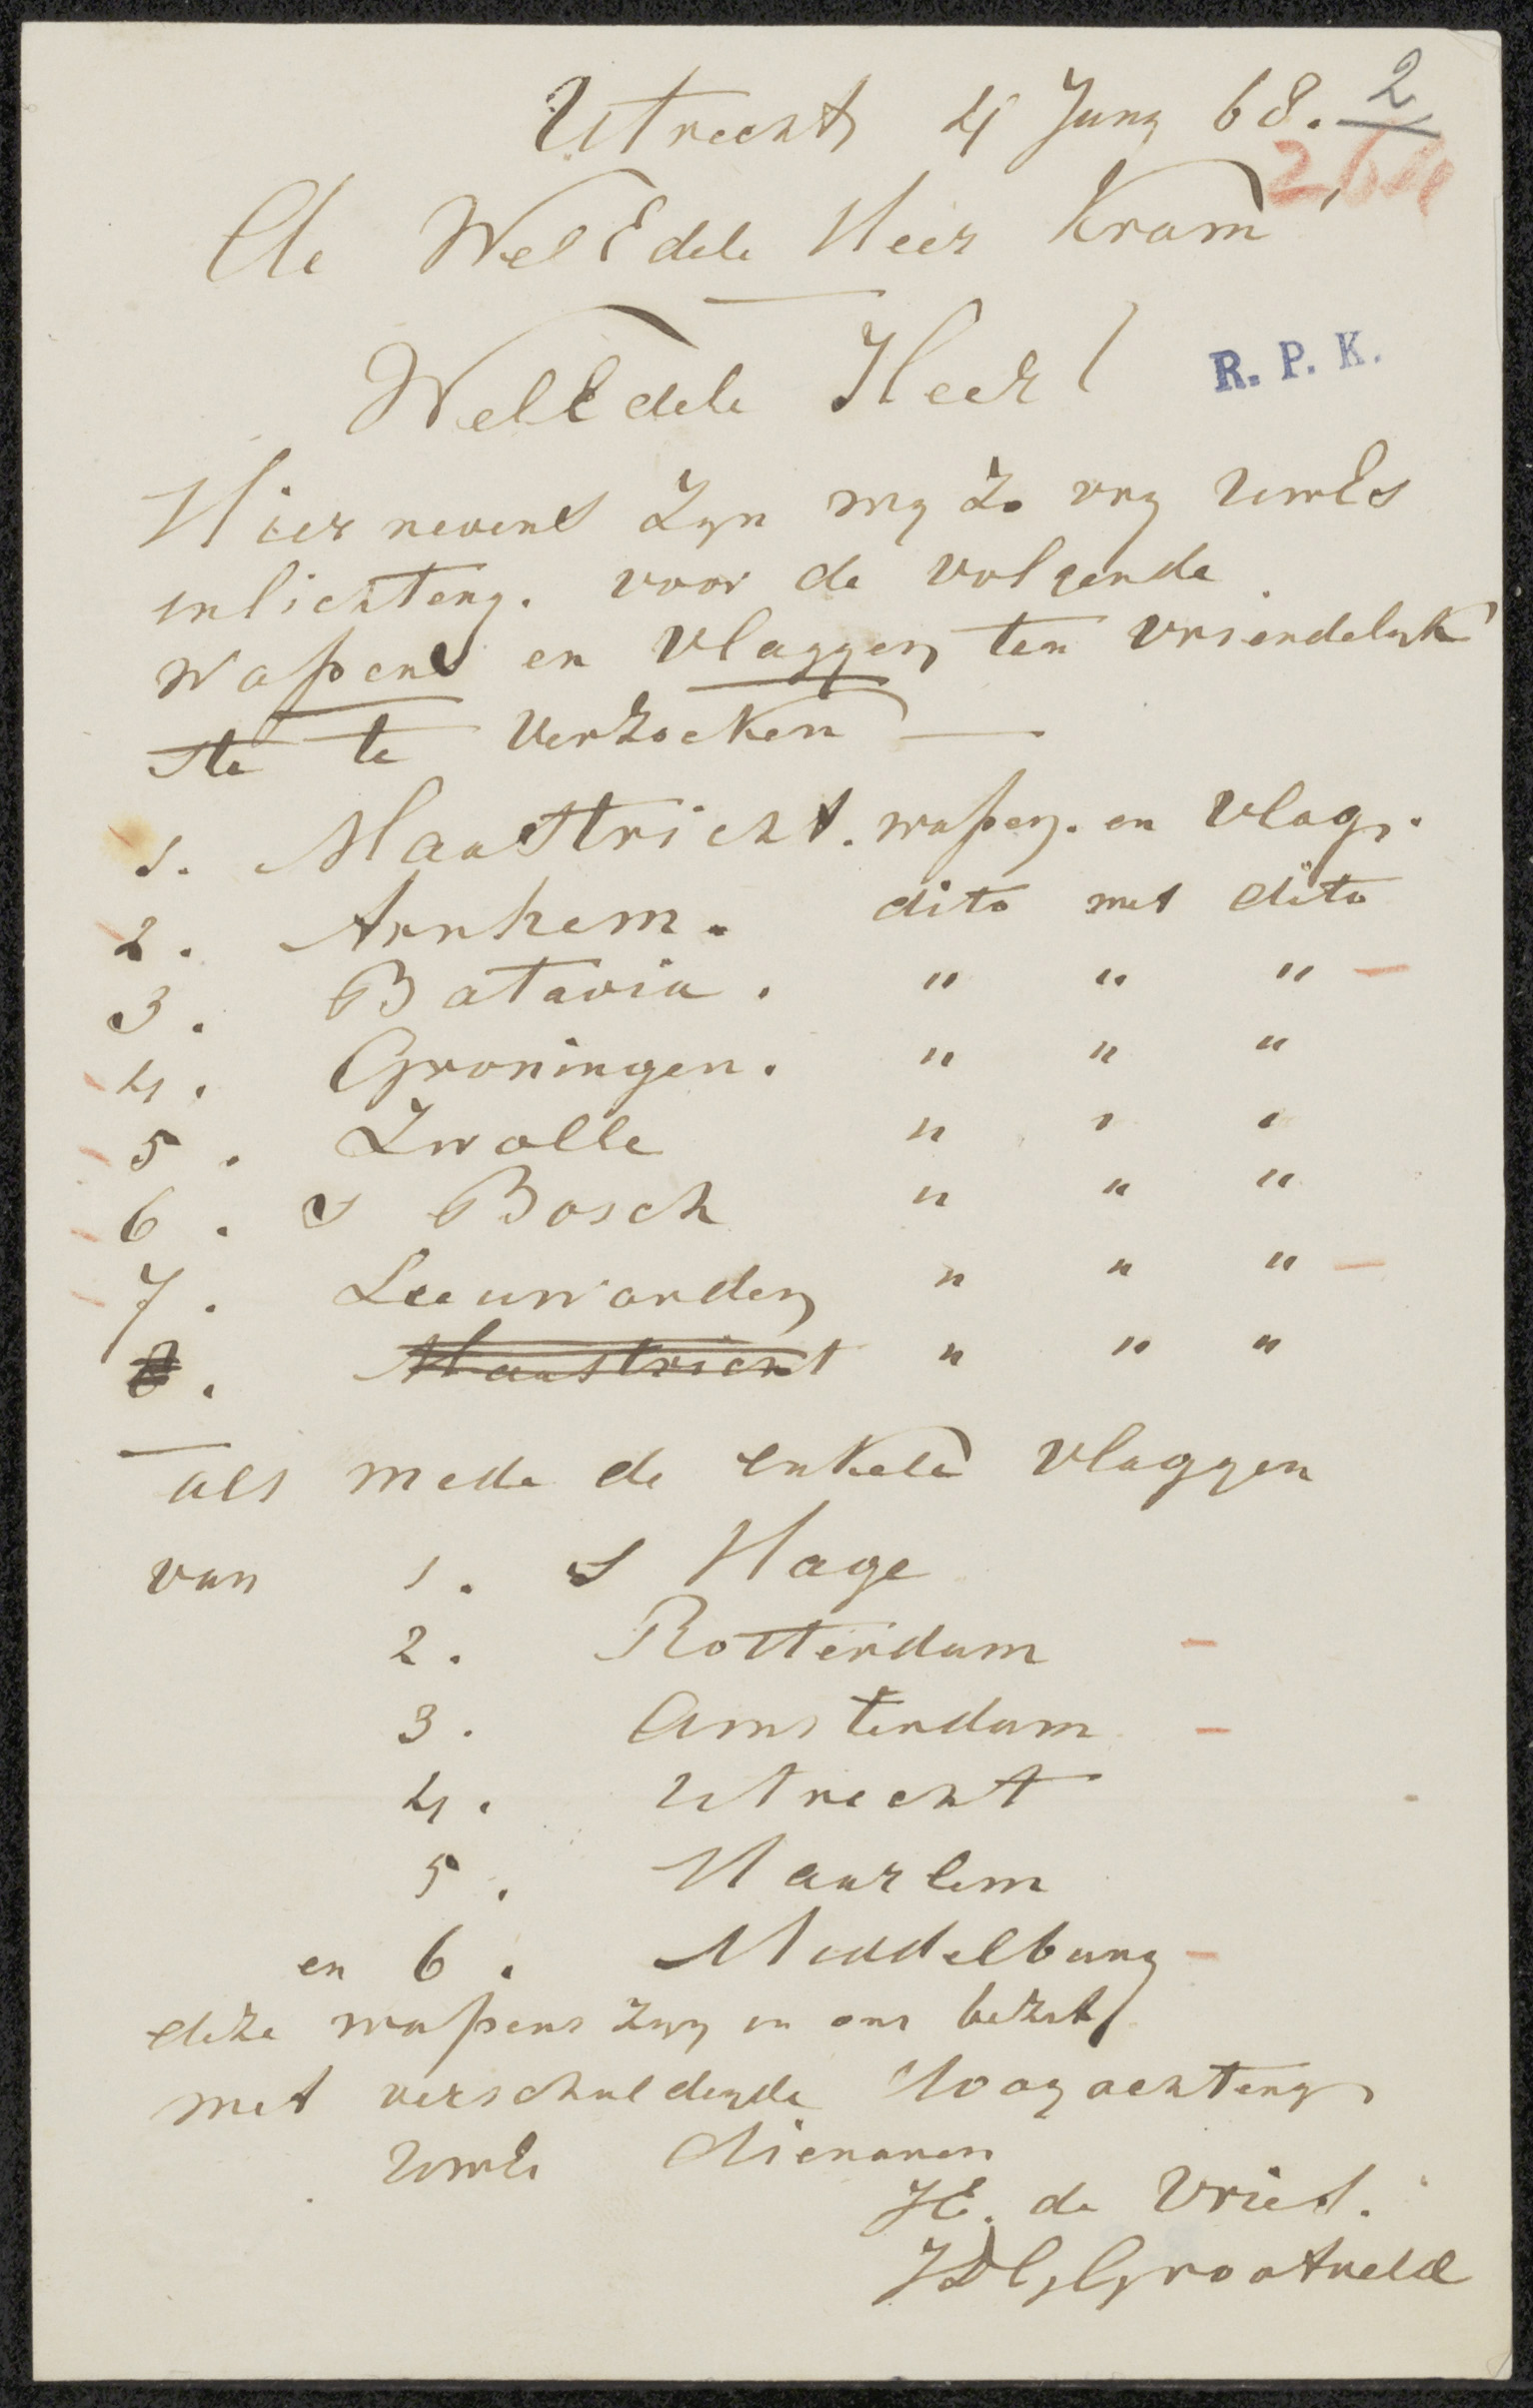 Utrecht 4 Juny 68. 2
De WelEdele Heer Kram
R. P. K.
WelEdele Heer!
Hiernevens Zyn wy Zo vry UwEs
inlichteng. voor de volgende
wapens en vlaggen ten vriendelyk
ste te verzoeken —
1. Maastricht. wapen. en vlag.
2. Arnhem. dito met dito
3. Batavia. " " " —
4. Groningen. " " "
5. Zwolle " " "
6. s Bosch " " "
7. Leeuwarden " " " —
8. Maastricht " " "
als mede de enkele vlaggen
van 1. s Hage
2. Rotterdam —
3. Amsterdam —
4. Utrecht
5. Haarlem
en 6. Middelburg —
deze wapens zyn in ons bezit
met verschuldigde Hoogachteng
UwEs Dienaren
H. de Vries.
Grootveld